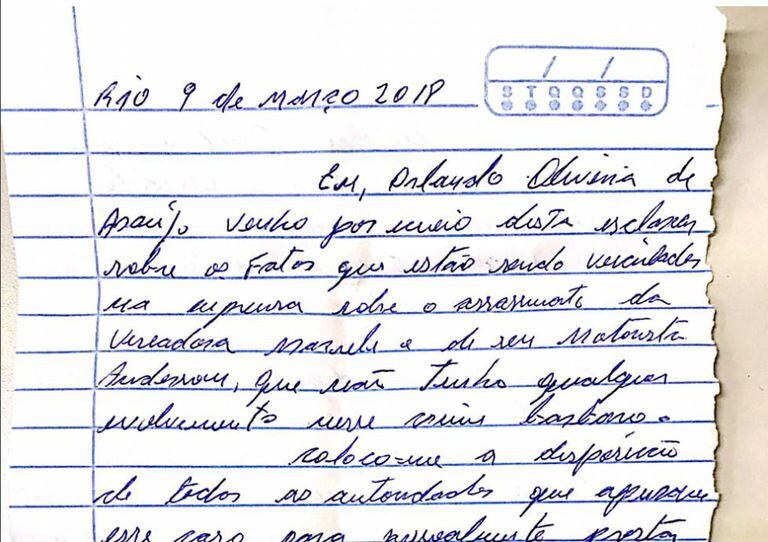 Rio 9 de março 2018
/ /
S T Q Q S S D
Eu, Orlando Oliveira de
Araújo venho por meio desta esclarecer
sobre os Fatos que estão sendo veiculados
na imprensa sobre o assassinato da
Vereadora Marielle e de seu Motorista
Anderson, que não Tenho qualquer
envolvimento nesse crime bárbaro.
coloco-me a disposição
de todas as autoridades que apuram
esse caso para